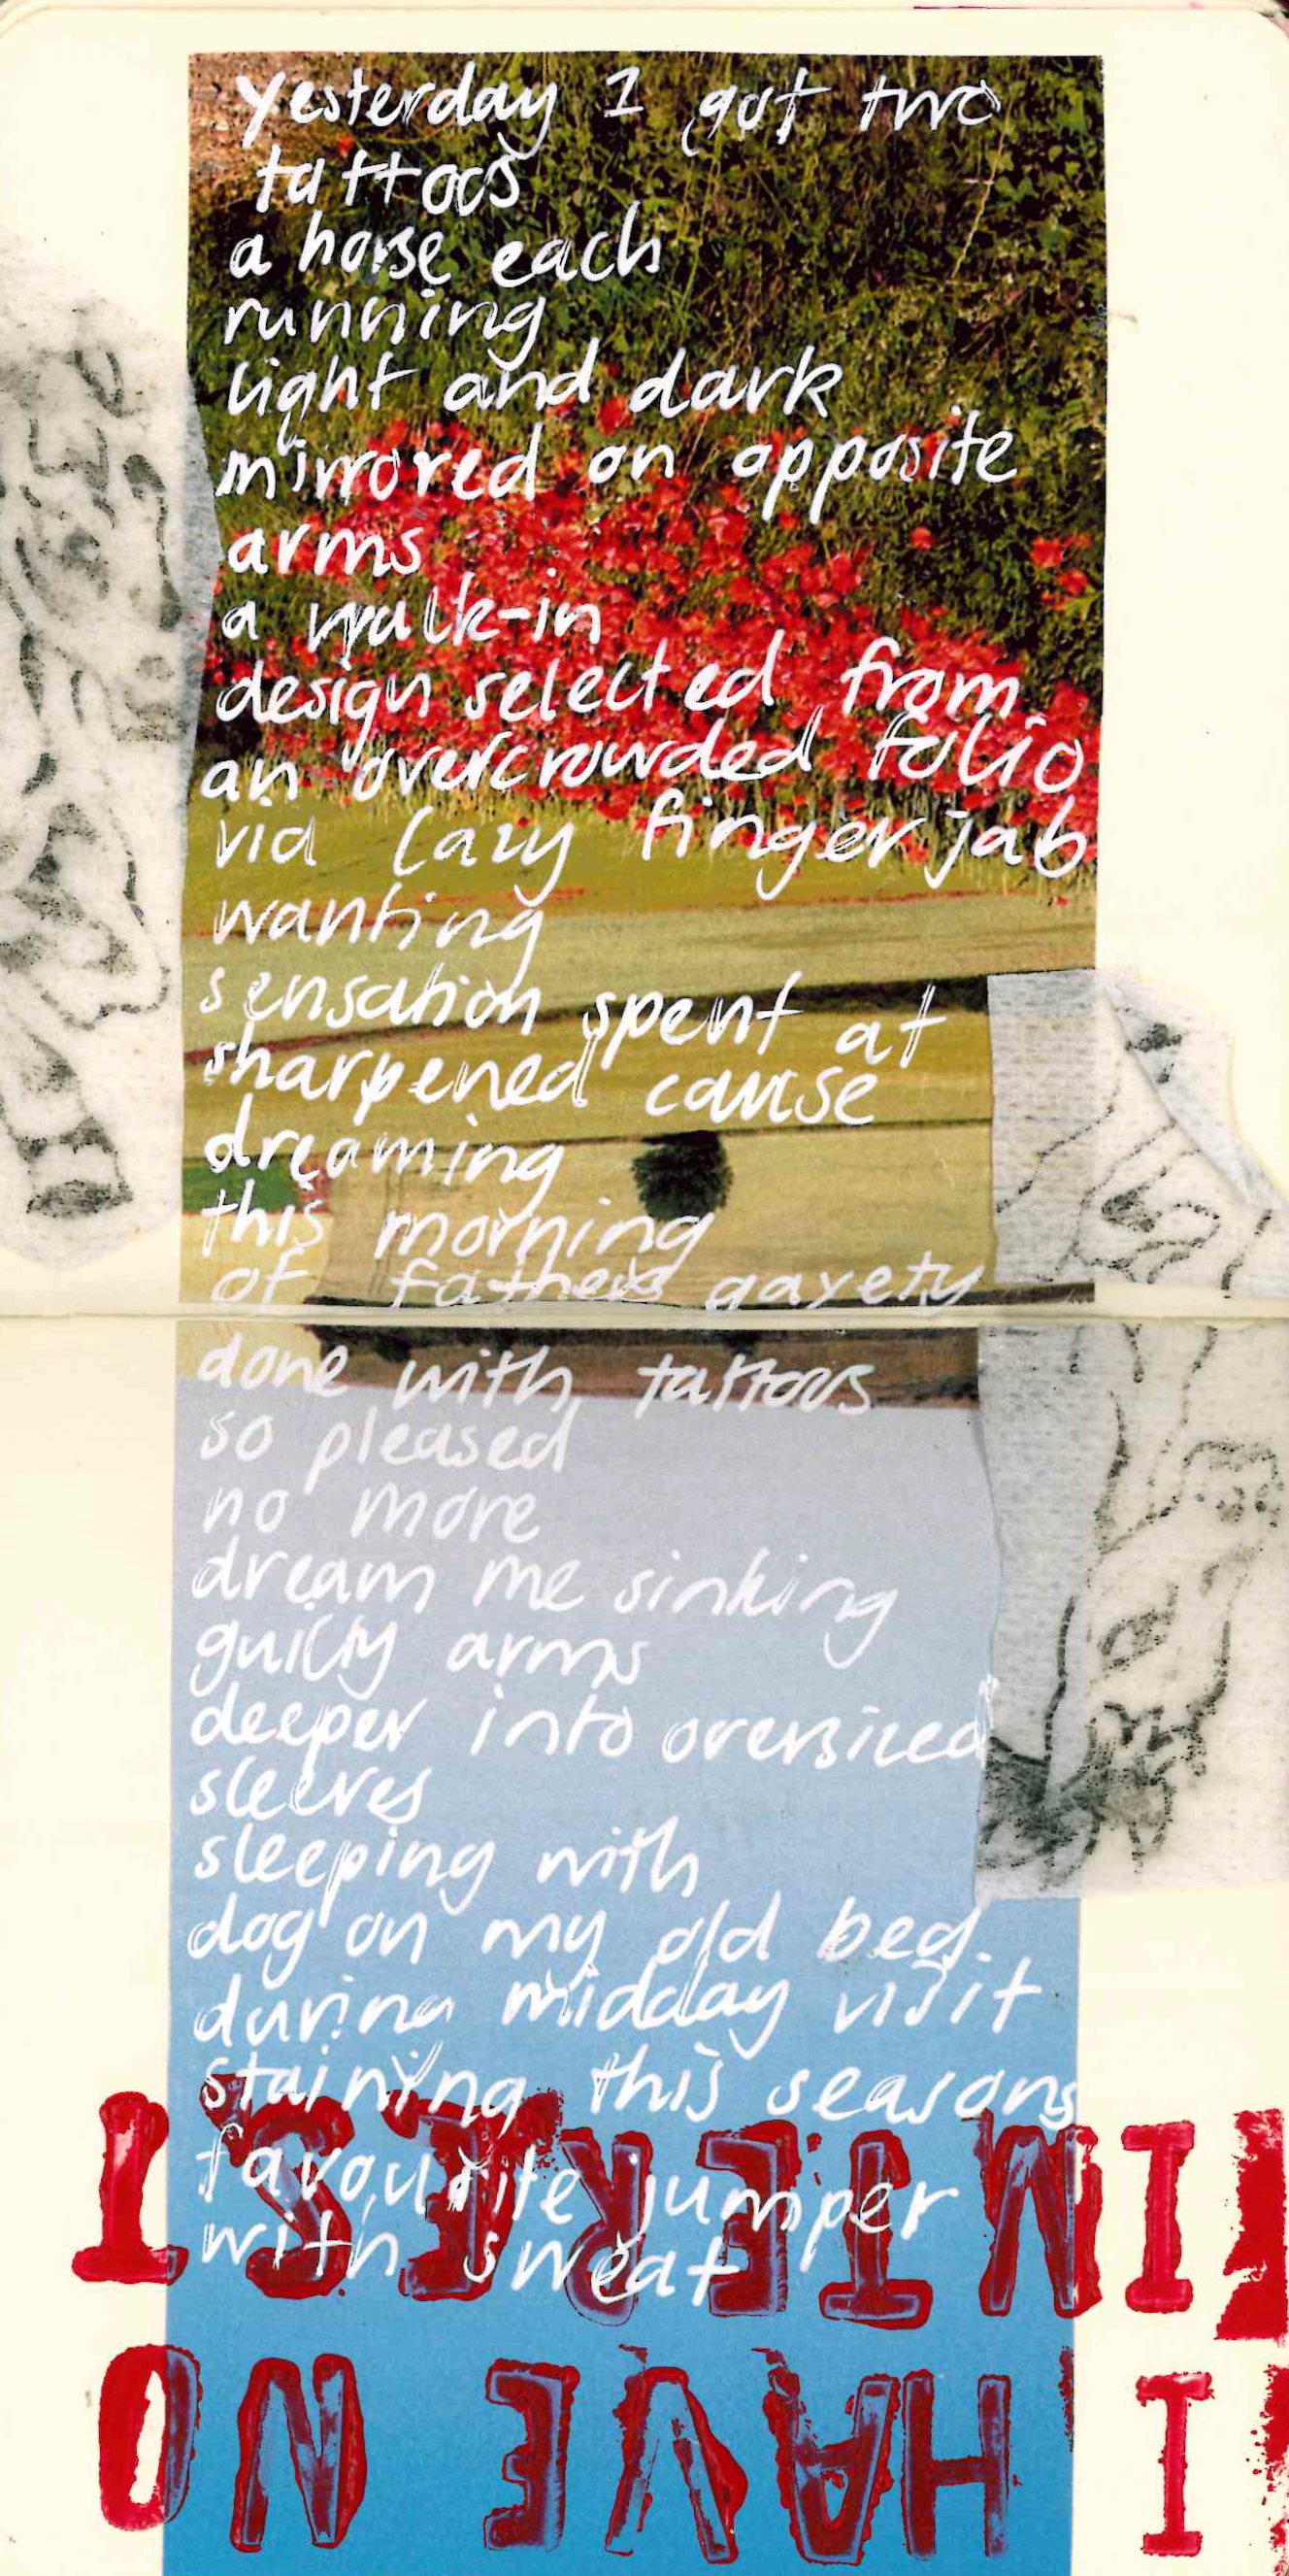 yesterday I got two
tattoos
a horse each
running
light and dark
mirrored on opposite
arms
a walk-in
design selected from
an overcrowded folio
via lazy finger jab
wanting
sensation spent at
sharpened cause
dreaming
this morning
of fathers gayety
done with tattoos
so pleased
no more
dream me sinking
guilty arms
deeper into oversized
sleeves
sleeping with
dog on my old bed
during midday visit
staining this seasons
favourite jumper
with sweat
I HAVE NO
INTEREST